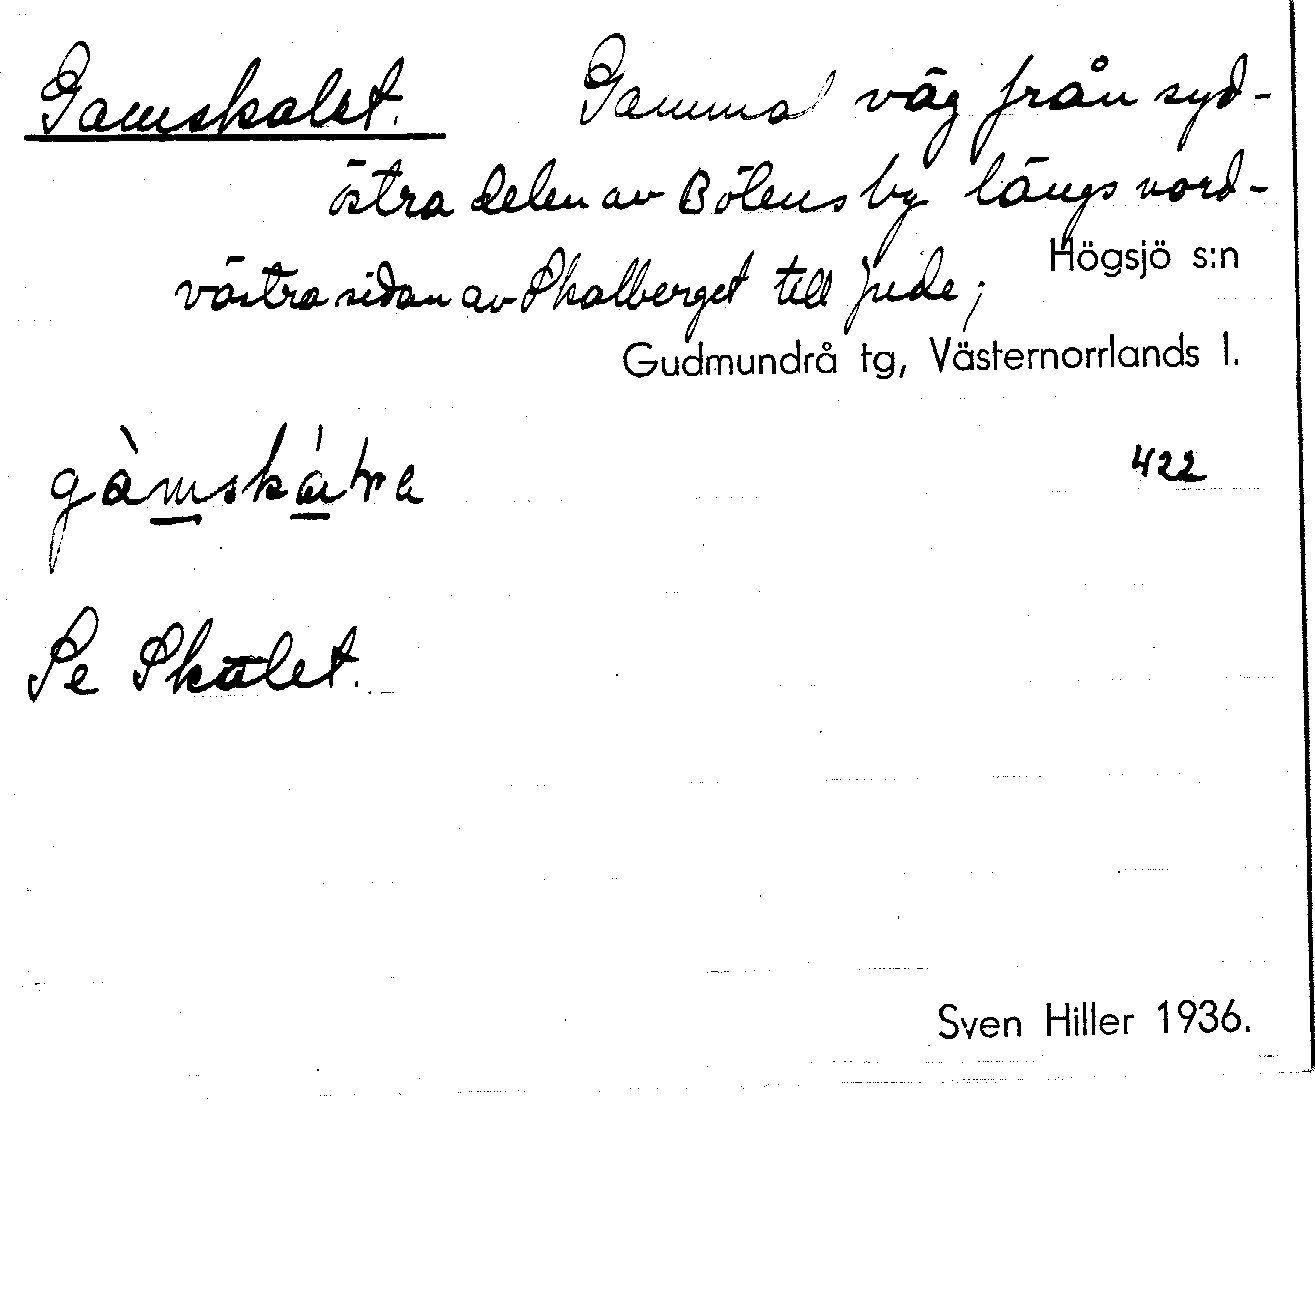 Gamskalet. Gammal väg från syd-
östra delen av Bölens by längs nord-
västra sidan av Skalberget till Jude;
Högsjö s:n
Gudmundrå tg, Västernorrlands l.
422
Se Skalet.
Sven Hiller 1936.